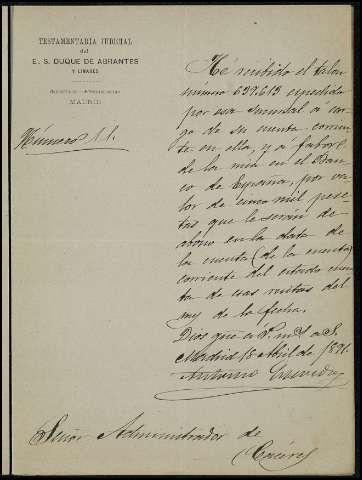 TESTAMENTARIA JUDICIAL
del
E. S. DUQUE DE ABRANTES
Y LINARES
MADRID
Número 11.
He recibido el talon
número 627.613 expedido
por esa sucursal á car
go de su cuenta corrien
te en ella, y a fabor
de la mia en el Ban
co de España, por va
lor de cinco mil pese
tas que le serán de
abono en la data de
la cuenta (de la cuenta)
corriente del estado
de esas rentas del
mes de la fecha.
Dios gue a V. ms as
Madrid 18 Abril de 1891.
Antonio
Señor Administrador de
Cáceres